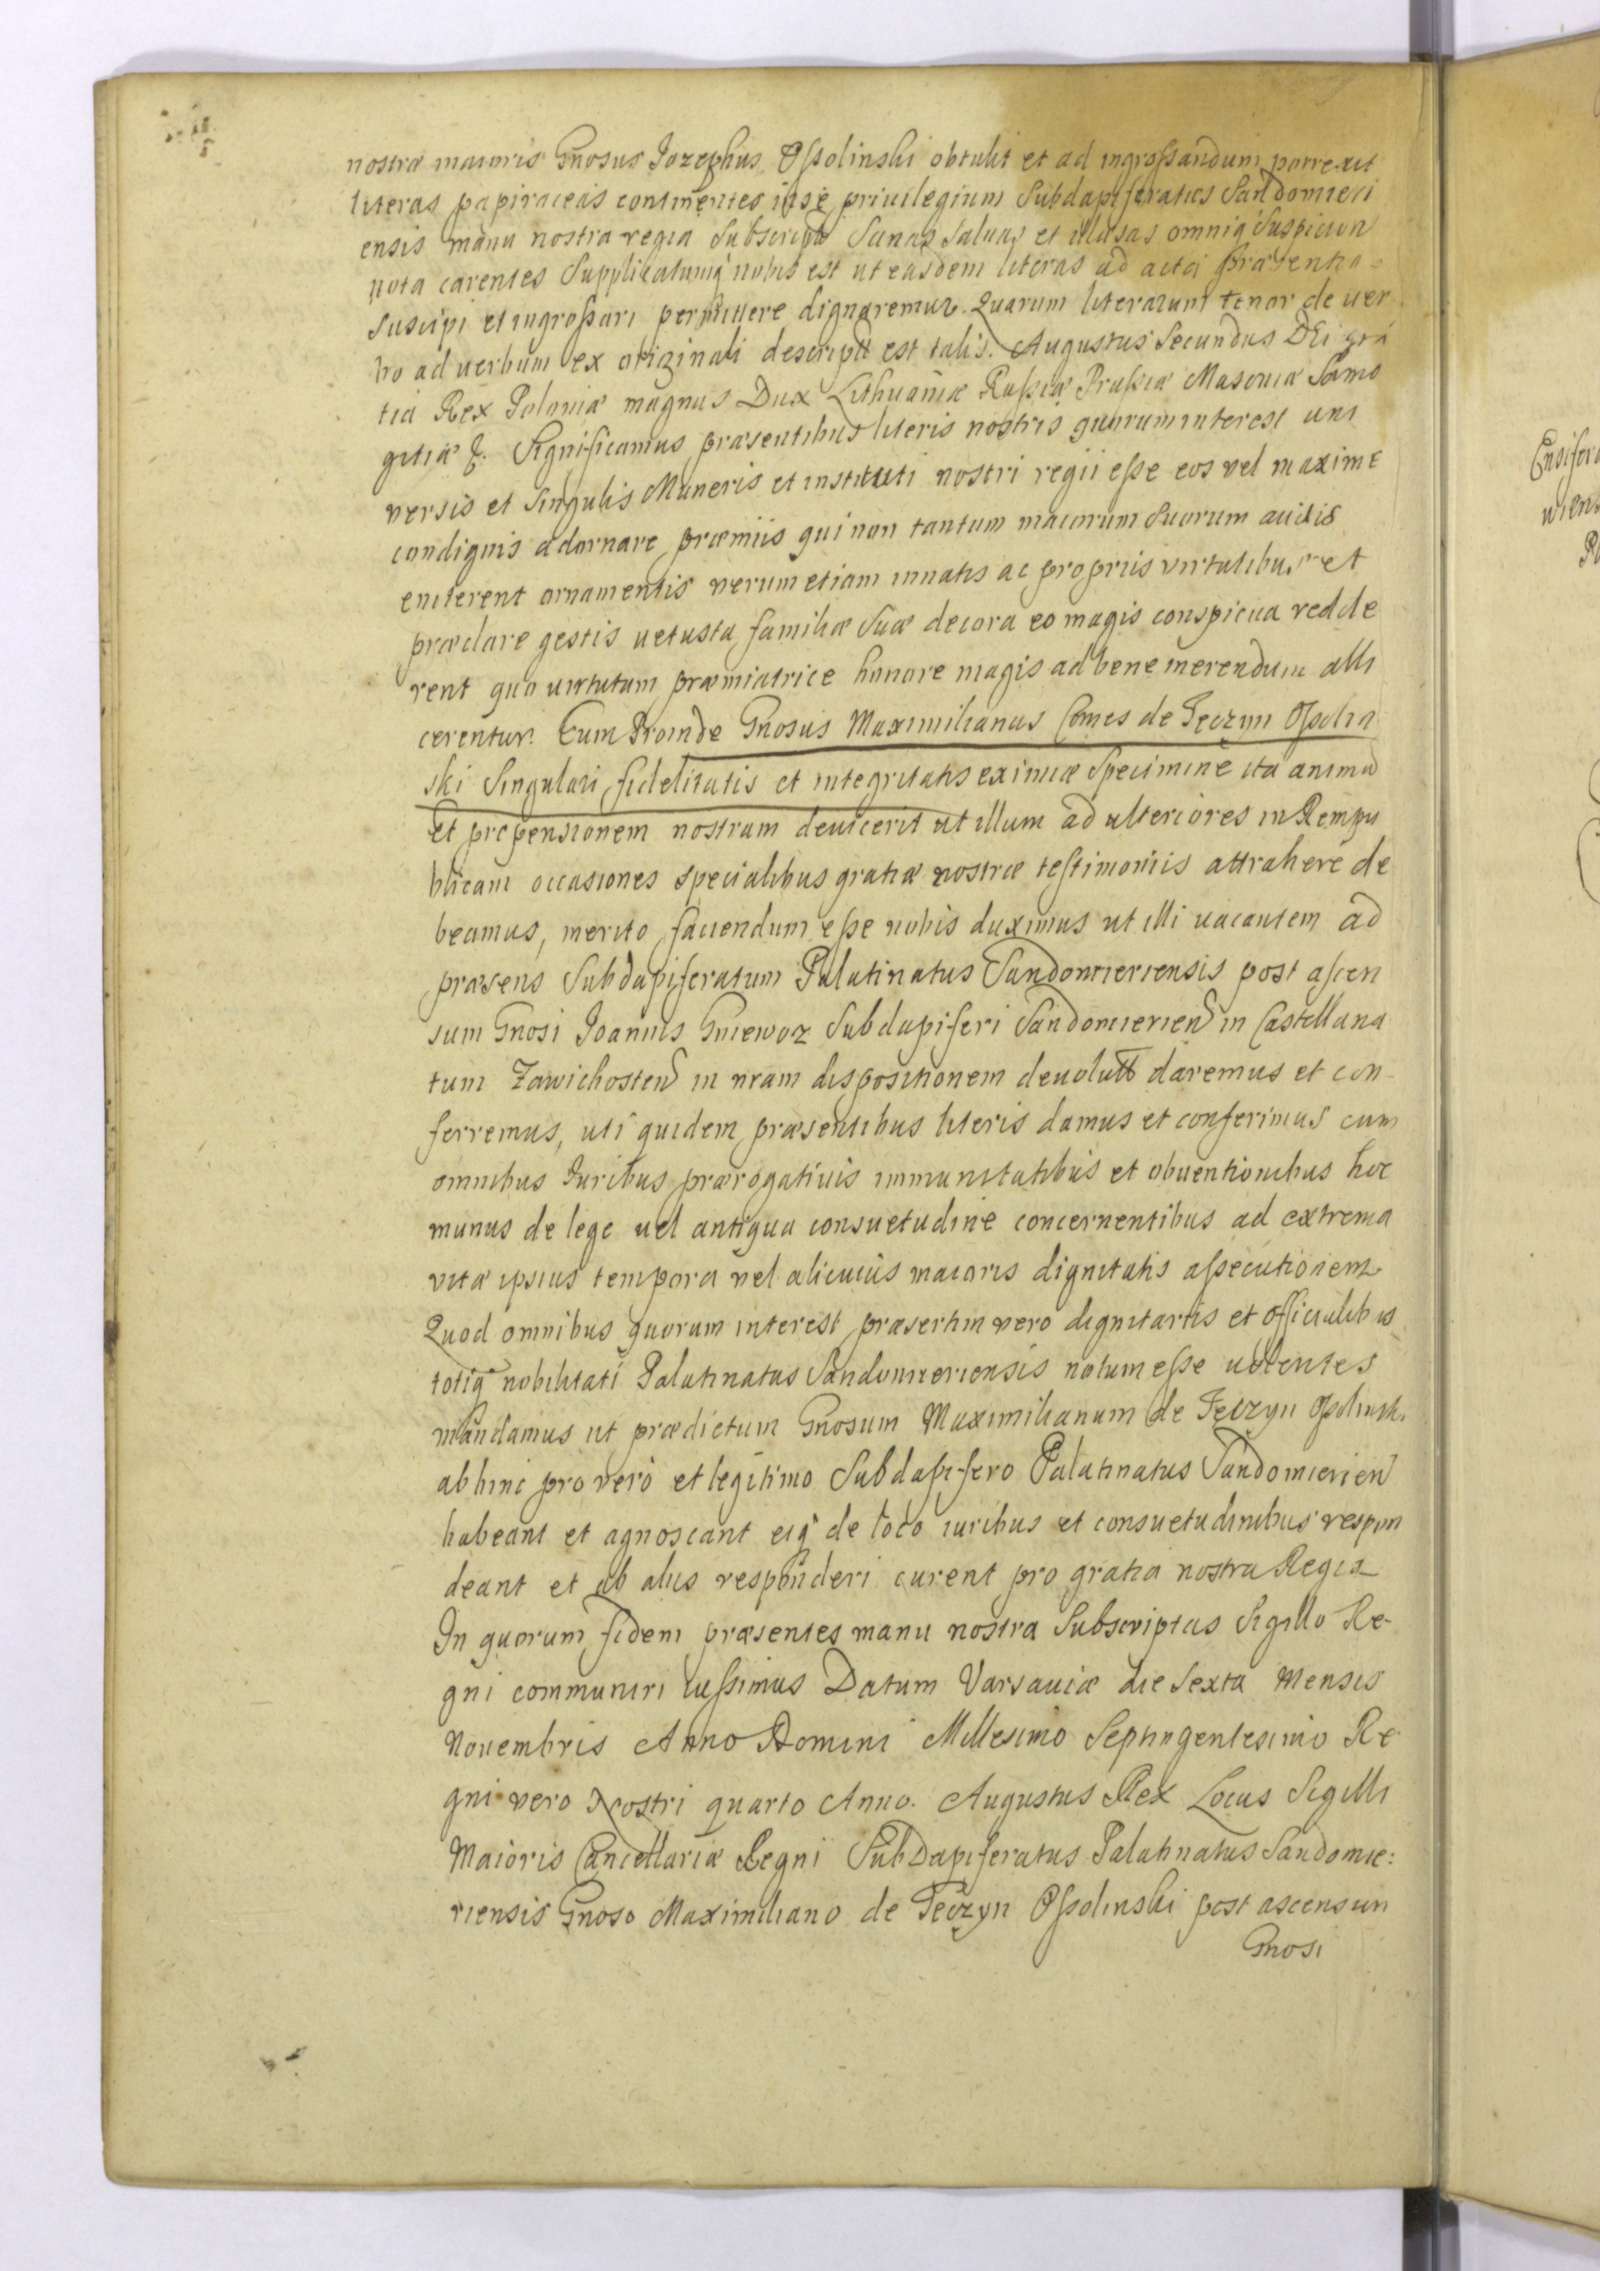 nostræ maioris Gnosus Jozephus Ossolinski obtulit et ad ingrossandum porrexit
literas papiraceas continentes in se priuilegium Subdapiferatus Sandomieri
ensis manu nostra regia Subscriptas Sanas saluas et illæsas omniq suspicion
nota carentes Supplicatumq nobis est ut easdem literas ad acta præsentia
suscipi et ingrossari permittere dignaremur. Quarum literarum tenor de uer
bo ad uerbum ex originali descriptus est talis. Augustus Secundus DEi gra
tia Rex Poloniæ magnus Dux Lithuaniæ Russiæ Prussiæ Masouiæ Samo
gitiæ &. Significamus præsentibus literis nostris quorum interest uni
versis et singulis Muneris et instituti nostri regii esse eos vel maxime
condignis adornare præmiis qui non tantum maiorum suorum auitis
eniterent ornamentis verum etiam innatis ac propriis virtutibus et
præclare gestis uetusta familiæ suæ decora eo magis conspicua redde
rent quo uirtutum præmiatrice honore magis ad bene merendum alli
cerentur. Cum Proinde Gnosus Maximilianus Comes de Teczyn Ossolin
ski Singulari fidelitatis et integritatis eximiæ specimine ita animū
et propensionem nostram deuicerit ut illum ad ulteriores in Rempu
blicam occasiones specialibus gratiæ nostræ testimoniis attrahere de
beamus, merito faciendum esse nobis duximus ut illi uacantem ad
præsens Subdapiferatum Palatinatus Sandomieriensis post ascen
sum Gnosi Joannis Gniewoz Subdapiferi Sandomierien in Castellana
tum Zawichosten in nram dispositionem deuolutū daremus et con
ferremus, uti quidem præsentibus literis damus et conferimus cum
omnibus Juribus prærogatiuis immunitatibus et obuentionibus hoc
munus de lege uel antiqua consuetudine concernentibus ad extrema
vitæ ipsius tempora vel alicuius maioris dignitatis assecutionem
Quod omnibus quorum interest præsertim vero dignitariis et officialibus
totiq nobilitati Palatinatus Sandomieriensis notum esse uolentes
mandamus ut prædictum Gnosum Maximilianum de Teczyn Ossolinski
ab hinc pro vero et legitimo Subdapifero Palatinatus Sandomierien
habeant et agnoscant eiq de loco iuribus et consuetudinibus respon
deant et ab aliis responderi curent pro gratia nostra Regia
In quorum fidem præsentes manu nostra Subscriptas Sigillo Re-
gni communiri iussimus Datum Varsauiæ die Sexta Mensis
Nouembris Anno Domini Millesimo Septingentesimo Re
gni vero Nostri quarto Anno. Augustus Rex Locus Sigilli
Maioris Cancellariæ Regni SubDapiferatus Palatinatus Sandomie:
riensis Gnoso Maximiliano de Teczyn Ossolinski post ascensum
Gnosi